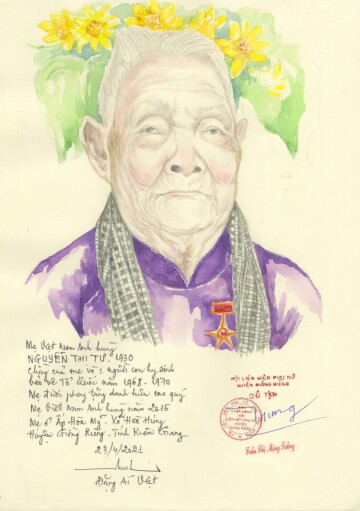 Mẹ Việt Nam Anh hùng
NGUYỄN THỊ TƯ. 1930
chồng của mẹ và 1 người con hy sinh
bảo vệ Tổ Quốc năm 1968 - 1970
Mẹ được phong tặng danh hiệu cao quý
Mẹ Việt Nam Anh hùng năm 2015
Mẹ ở Ấp Hòa Mỹ. Xã Hòa Hưng
Huyện Giồng Riềng. Tỉnh Kiên Giang
23/4/2021
Đặng Ái Việt
HỘI LIÊN HIỆP PHỤ NỮ
HUYỆN GIỒNG RIỀNG
CHỦ TỊCH
Trần Thị Mộng Tường